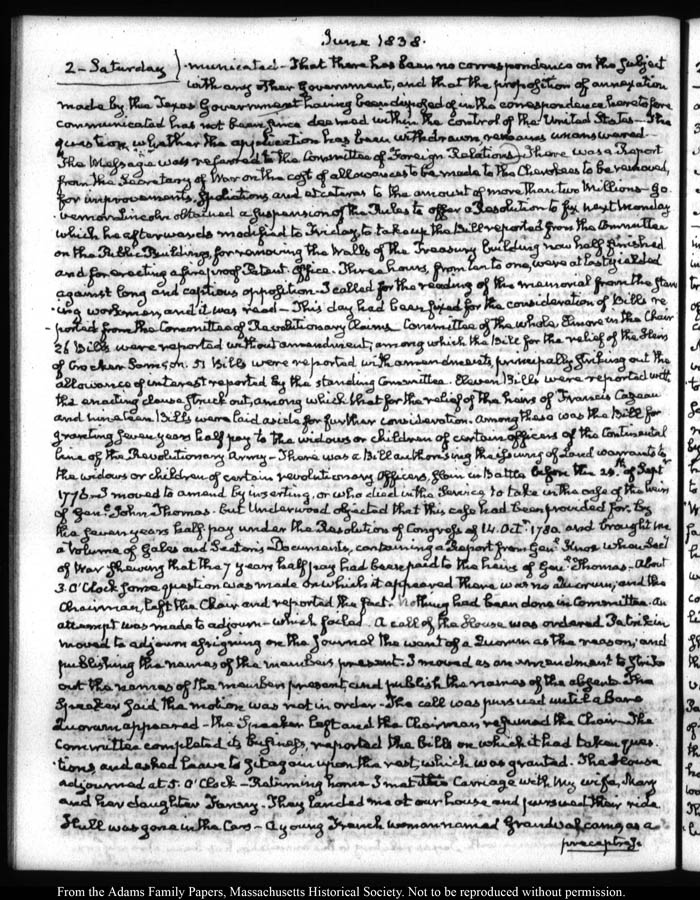 June 1838.
2 - Saturday) municated - That there has been no correspondence on the subject
with any other Government, and that the proposition of annexation
made by the Texas Government having been disposed of in the correspondence heretofore
communicated has not been since deemed within the control of the United States - The
question, whether the application has been withdrawn, remains unanswered.
The Message was referred to the Committee of Foreign Relations. There was a Report
from the Secretary of War on the cost of allowances to be made to the Cherokees to be removed,
for improvements, spoliations and etcaetera to the amount of more than two Millions - Go-
vernor Lincoln obtained a suspension of the Rules to offer a Resolution to fix next Monday
which he afterwards modified to Friday, to take up the Bill reported from the Committee
on the Public Buildings, for removing the Walls of the Treasury building now half finished
and for erecting a fire proof Patent Office. Three hours, from ten to one, were at last yielded
against long and captious opposition. I called for the reading of the memorial from the
ing workmen, and it was read - This day had been fixed for the consideration of Bills re-
ported from the Committee of Revolutionary Claims - Committee of the whole, Elmore in the Chair
26 Bills were reported without amendment, among which the Bill for the relief of the Heirs
of Crocker Samson. 51 Bills were reported with amendments, principally striking out the
allowance of interest reported by the standing Committee. Eleven Bills were reported with
the enacting clause struck out, among which that for the relief of the heirs of Francis Cazeau
and nineteen Bills were laid aside for further consideration. Among these was the Bill for
granting seven years half pay to the widows or children of certain officers of the Continental
line of the Revolutionary Army - There was a Bill authorising the issuing of Land warrants to
the widows or children of certain revolutionary Officers, slain in Battle before the of Septr
1776 - I moved to amend by inserting, or who died in the Service, to take in the case of the heirs
of Genl. John Thomas. But Underwood objected that this case had been provided for, by
the seven years half pay under the Resolution of Congress of 14. Octr. 1780. and brought me
a volume of Gales and Seaton's Documents, containing a Report from Genl. Knox when Secy
of War shewing that the 7 years half pay had been paid to the heirs of Genl. Thomas. About
3. O'Clock some question was made on which it appeared there was no Quorum, and the
Chairman left the Chair and reported the fact. Nothing had been done in Committee. An
attempt was made to adjourn - which failed. A call of the House was ordered Petrikin
moved to adjourn assigning on the Journal the want of a Quorum as the reason, and
publishing the names of the members present. I moved as an amendment to strike
out the names of the members present, and publish the names of the absent. The
Speaker said the motion was not in order - The call was pursued until a bare
Quorum appeared - the Speaker left and the Chairman resumed the Chair - The
Committee completed its business, reported the bills on which it had taken ques-
tions, and asked leave to sit again upon the rest, which was granted. The House
adjourned at 5. O'Clock - Returning home I met the Carriage with my wife, Mary
and her daughter Fanny. They landed me at our house and pursued their ride
Hull was gone in the Cars - A young French woman named came as a
preceptress
From the Adams Family Papers, Massachusetts Historical Society. Not to be reproduced without permission.